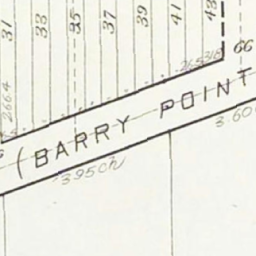 31
33
35
37
39
41
43
66
2664
(BARRY POINT
3.95ch
3.60